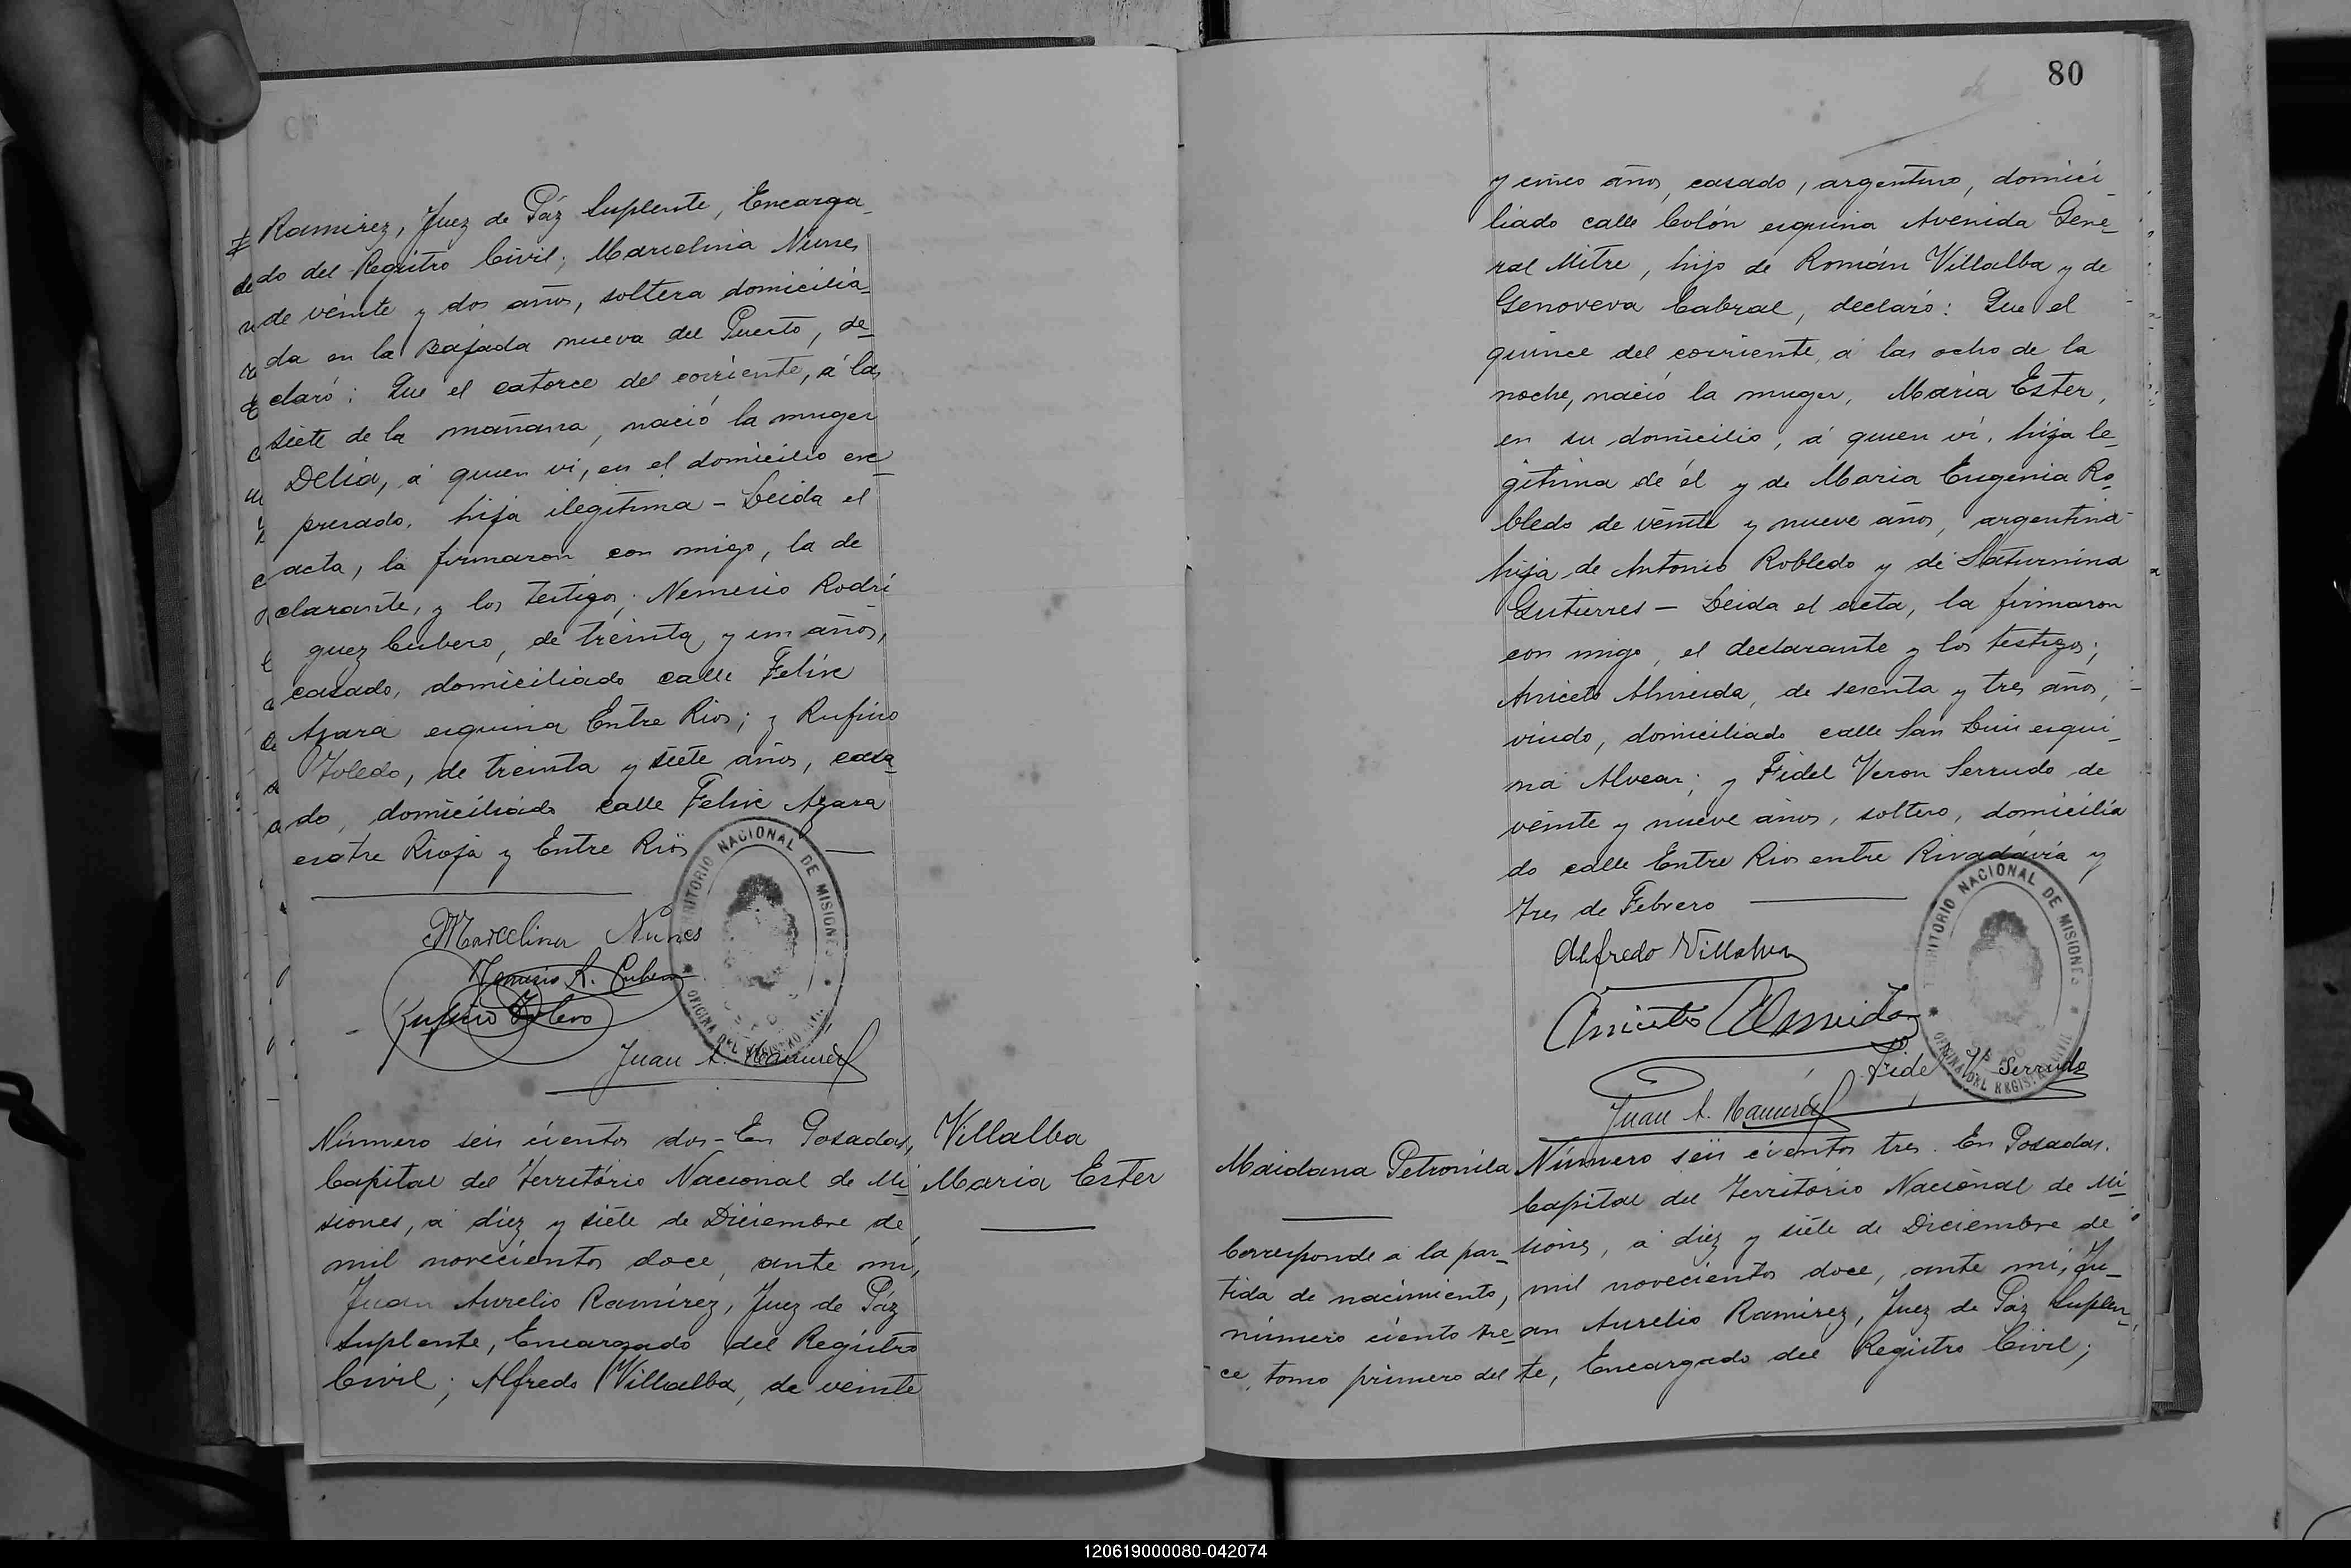 Ramirez, Juez de Páz Suplente, Encarga_
do del Registro Civil; Marcelina Nunes
de veinte y dos años, soltera domicilia_
da en la Bajada nueva del Puerto, de_
claró: Que el catorce del corriente, á las
siete de la mañana, nació la muger
Delia, á quien vi, en el domicilio ex_
presado, hija ilegitima - Leida el
acta, la firmaron con migo, la de
clarante, y los testigos; Nemesio Rodri_
guez Cubero, de treinta y un años,
casado, domiciliado calle Felix
Azara esquina Entre Rios; y Rufino
Toledo, de treinta y siete años, casa_
do, domiciliado calle Felix Azara
entre Rioja y Entre Rios
Marcelina Nunes
Nemesio R. Cubero
Rufino Toledo
Juan A. Ramirez
TERRITORIO NACIONAL DE MISIONES
OFICINA DEL REGISTRO CIVIL
Villalba
Maria Ester
Número seis cientos dos - En Posadas,
Capital del Território Nacional de Mi_
siones, á diez y siete de Diciembre de
mil novecientos doce, ante mi,
Juan Aurelio Ramírez, Juez de Páz
Suplente, Encargado del Registro
Civil; Alfredo Villalba, de veinte
80
y cinco años, casado, argentino, domici_
liado calle Colón esquina Avenida Gene_
ral Mitre, hijo de Román Villalba y de
Genoveva Cabral, declaró: Que el
quince del corriente, á las ocho de la
noche, nació la muger, María Ester,
en su domicilio, á quien vi, hija le_
gitima de él y de Maria Eugenia Ro_
bledo de veinte y nueve años, argentina
hija de Antonio Robledo y de Saturnina
Gutierres - Leida el acta, la firmaron
con migo, el declarante y los testigos;
Aniceto Almeida, de sesenta y tres años,
viudo, domiciliado calle San Luis esqui_
na Alvear; y Fidel Veron Serrudo de
veinte y nueve años, soltero, domicilia
do calle Entre Rios entre Rivadavia y
Tres de Febrero
Alfredo Villalva
Aniceto Almeida
Fidel V. Serrudo
Juan A. Ramirez
TERRITORIO NACIONAL DE MISIONES
OFICINA DEL REGISTRO CIVIL
Maidana Petronila
Corresponde á la par_
tida de nacimiento,
número ciento tre_
ce, tomo primero del
Número seis cientos tres. En Posadas,
Capital del Território Nacional de Mi_
siones, á diez y siete de Diciembre de
mil novecientos doce, ante mi, Ju_
an Aurelio Ramírez, Juez de Páz Suplen_
te, Encargado del Registro Civil;
120619000080-042074